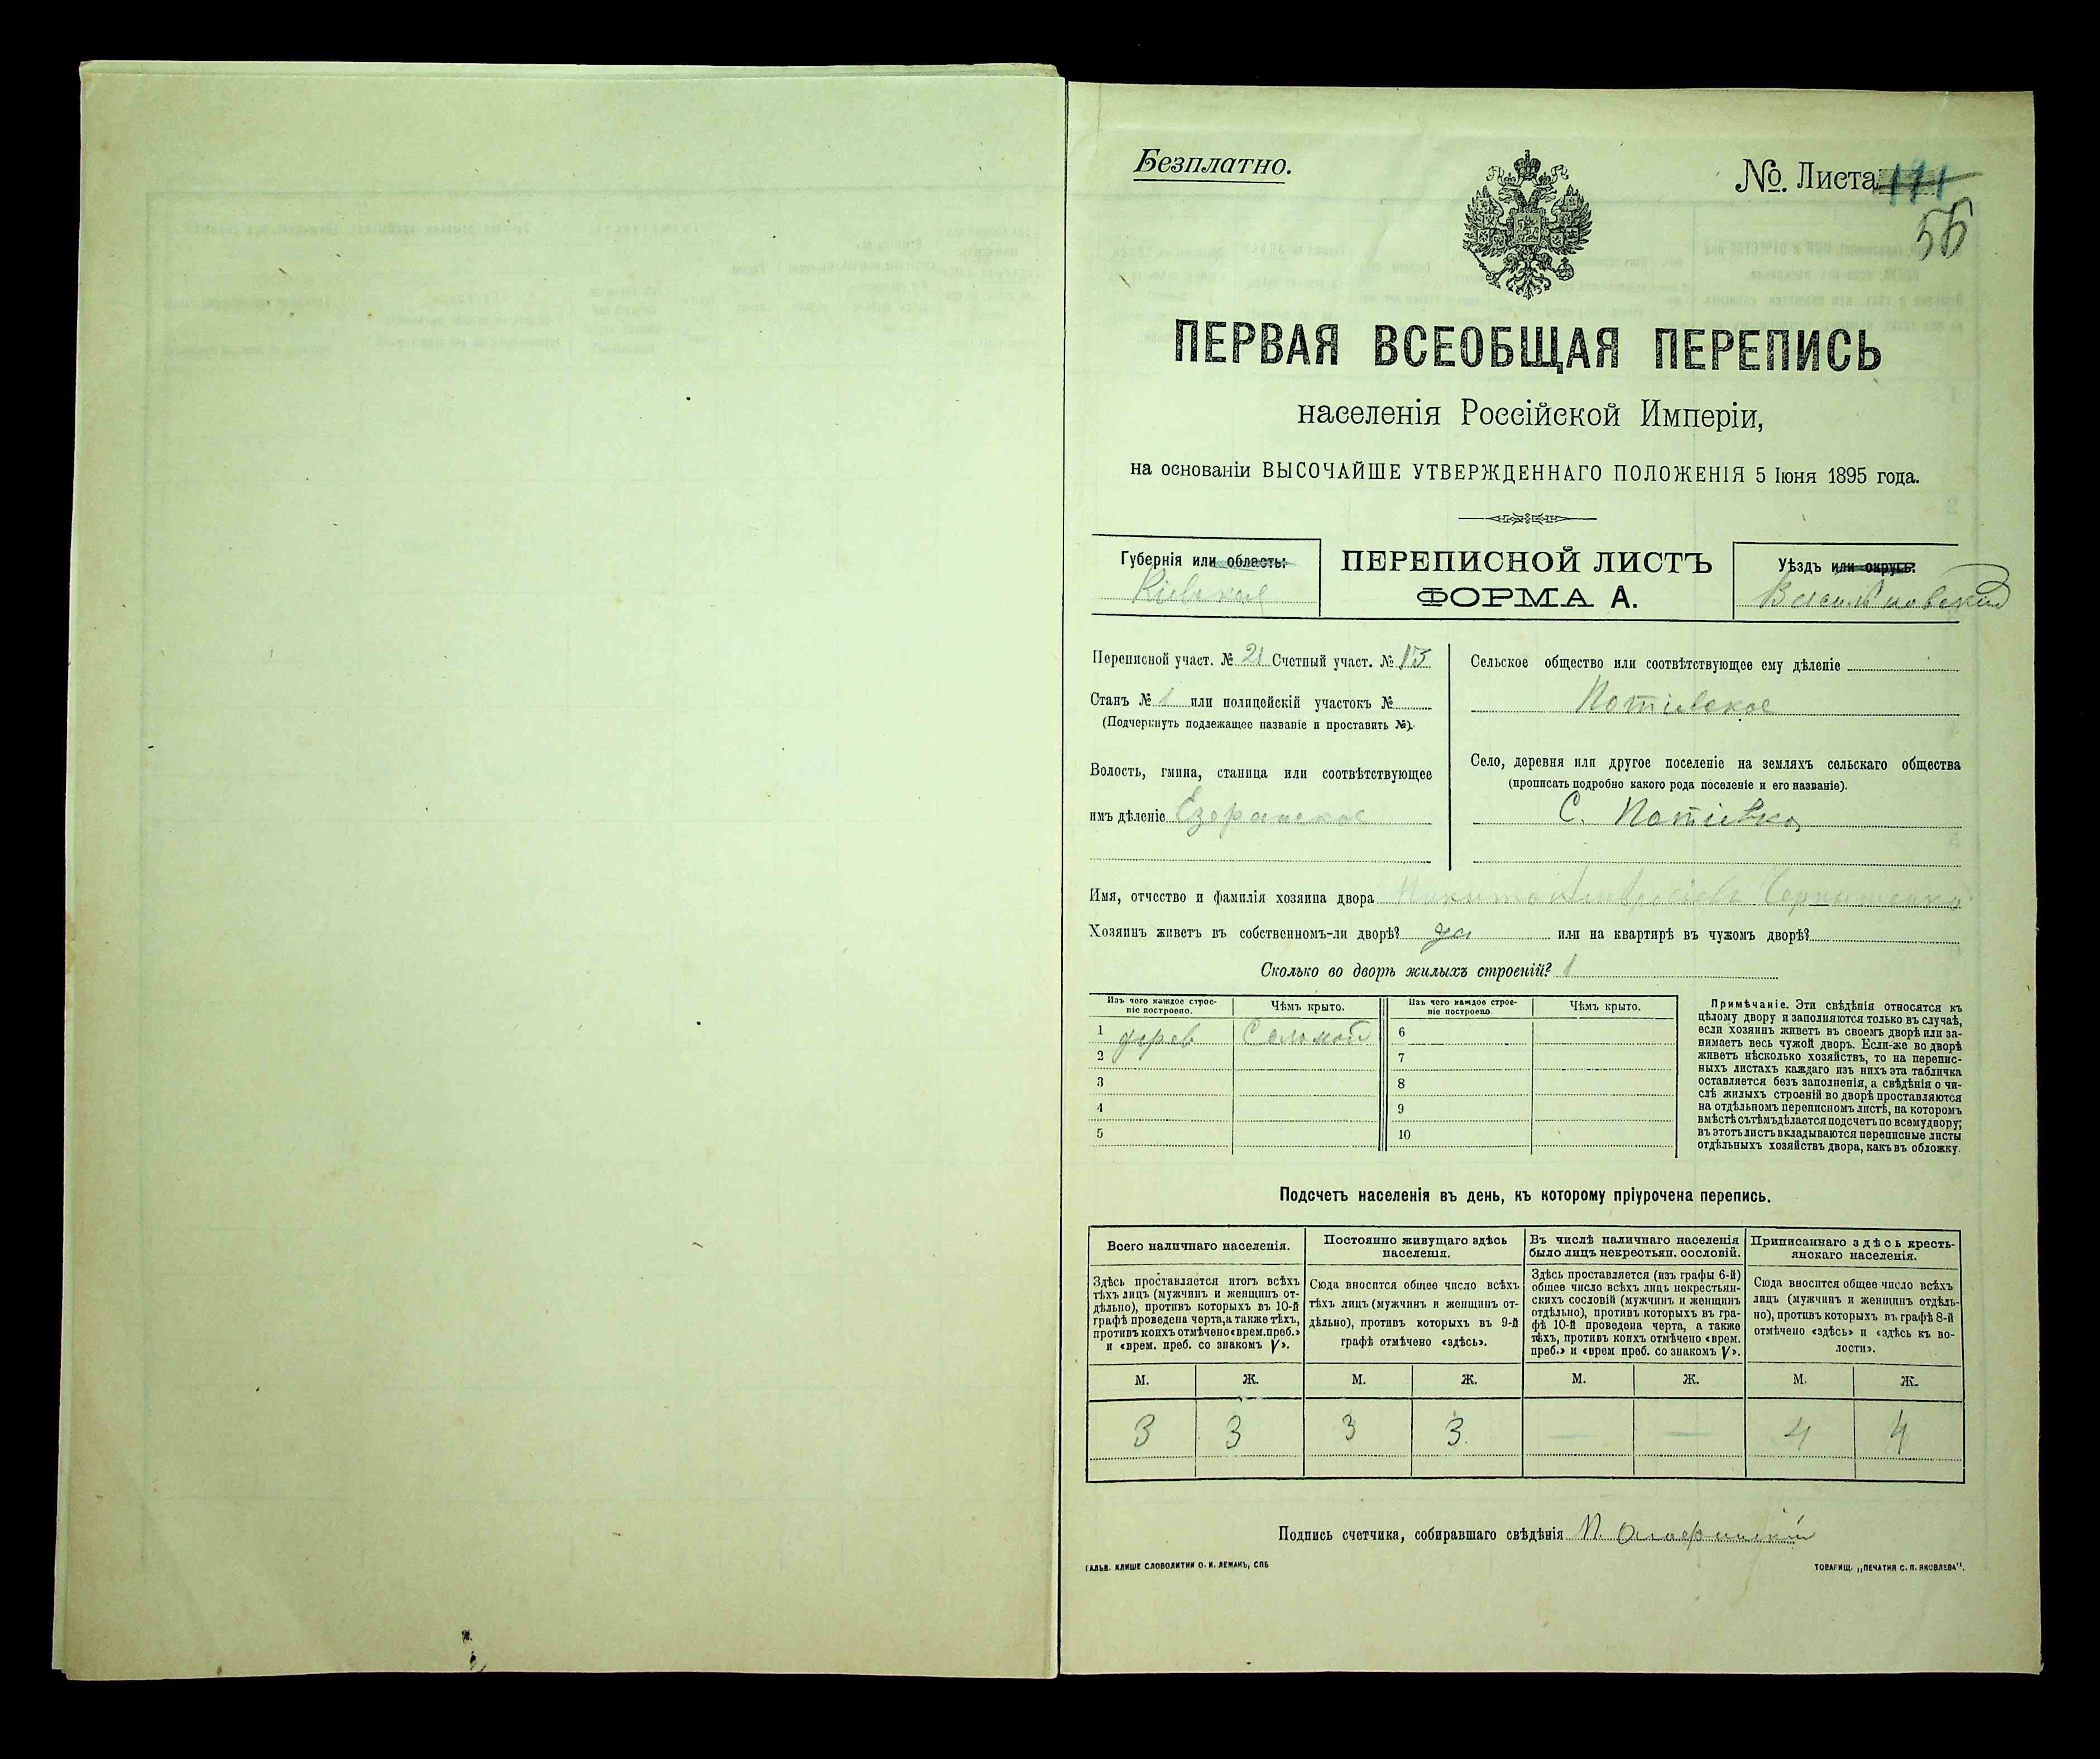 Безплатно.
№. Листа 171
56
ПЕРВАЯ ВСЕОБЩАЯ ПЕРЕПИСЬ
населенія Россійской Имперіи,
на основаніи ВЫСОЧАЙШЕ УТВЕРЖДЕННАГО ПОЛОЖЕНІЯ 5 Іюня 1895 года.
Губернія или область:
Кіевская
ПЕРЕПИСНОЙ ЛИСТЪ
ФОРМА А.
Уѣздъ или округъ:
Васильковский
Переписной участ. № 21 Счетный участ. № 13
Станъ № 1 или полицейскій участокъ №
(Подчеркнуть подлежащее названіе и проставить №).
Волость, гмина, станица или соотвѣтствующее
имъ дѣленіе Езерянское
Сельское общество или соотвѣтствующее ему дѣленіе
Потіевское
Село, деревня или другое поселеніе на земляхъ сельскаго общества
(прописать подробно какого рода поселеніе и его названіе).
С. Потіевка
Имя, отчество и фамилія хозяина двора Никита
Хозяинъ живетъ въ собственномъ-ли дворѣ? да или на квартирѣ въ чужомъ дворѣ?
Сколько во дворѣ жилыхъ строеній? 1
Изъ чего каждое строе-
ніе построено.
Чѣмъ крыто.
Изъ чего каждое строе-
ніе построено
Чѣмъ крыто.
1 дерев Соломой 6
2 7
3 8
4 9
5 10
Примѣчаніе. Эти свѣдѣнія относятся къ
цѣлому двору и заполняются только въ случаѣ,
если хозяинъ живетъ въ своемъ дворѣ или за-
нимаетъ весь чужой дворъ. Если-же во дворѣ
живетъ нѣсколько хозяйствъ, то на перепис-
ныхъ листахъ каждаго изъ нихъ эта табличка
оставляется безъ заполненія, а свѣдѣнія о чи-
слѣ жилыхъ строеній во дворѣ проставляются
на отдѣльномъ переписномъ листѣ, на которомъ
вмѣстѣ съ тѣмъ дѣлается подсчетъ по всему двору;
въ этотъ листъ вкладываются переписные листы
отдѣльныхъ хозяйствъ двора, какъ въ обложку.
Подсчетъ населенія въ день, къ которому пріурочена перепись.
Всего наличнаго населенія.
Здѣсь проставляется итогъ всѣхъ
тѣхъ лицъ (мужчинъ и женщинъ от-
дѣльно), противъ которыхъ въ 10-й
графѣ проведена черта, а также тѣхъ,
противъ коихъ отмѣчено «врем. преб.»
и «врем. преб. со знакомъ V».
Постоянно живущаго здѣсь
населенія.
Сюда вносится общее число всѣхъ
тѣхъ лицъ (мужчинъ и женщинъ от-
дѣльно), противъ которыхъ въ 9-й
графѣ отмѣчено «здѣсь».
Въ числѣ наличнаго населенія
было лицъ некрестьян. сословій.
Здѣсь проставляется (изъ графы 6-й)
общее число всѣхъ лицъ некрестьян-
скихъ сословій (мужчинъ и женщинъ
отдѣльно), противъ которыхъ въ гра-
фѣ 10-й проведена черта, а также
тѣхъ, противъ коихъ отмѣчено «врем.
преб.» и «врем преб. со знакомъ V».
Приписаннаго здѣсь кресть-
янскаго населенія.
Сюда вносится общее число всѣхъ
лицъ (мужчинъ и женщинъ отдѣль-
но), противъ которыхъ въ графѣ 8-й
отмѣчено «здѣсь» и «здѣсь къ во-
лости».
М. Ж. М. Ж. М. Ж. М. Ж.
3 3 3 3 — — 4 4
Подпись счетчика, собиравшаго свѣдѣнія
ГАЛЬВ. КЛИШЕ СЛОВОЛИТНИ О. И. ЛЕМАНЪ, СПБ
ТОВАРИЩ. „ПЕЧАТНЯ С. П. ЯКОВЛЕВА".